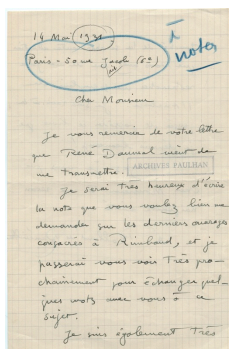 14 Mai 1931
à noter
Paris - 50 rue Jacob (6e)
Cher Monsieur
Je vous remercie de votre lettre
que René Daumal vient de
me transmettre.
ARCHIVES PAULHAN
Je serai très heureux d'écrire
la note que vous voulez bien me
demander sur les derniers ouvrages
consacrés à Rimbaud, et je
passerai vous voir très pro-
chainement pour échanger quel-
ques mots avec vous à ce
sujet.
Je suis également très